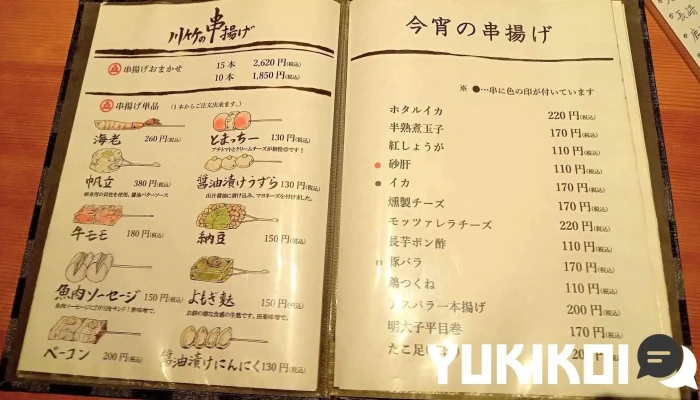 川竹の串揚げ
串揚げおまかせ 15本 2,620円(税込)
10本 1,850円(税込)
串揚げ単品 (1本からご注文出来ます。)
海老 260円(税込)
とまっちー 130円(税込)
プチトマトとクリームチーズが相性◎です!
帆立 380円(税込)
醤油漬けうずら 130円(税込)
出汁醤油に漬け込み、マヨネーズを付けました。
牛モモ 180円(税込)
納豆 150円(税込)
魚肉ソーセージ 150円(税込)
よもぎ麩 150円(税込)
ベーコン 200円(税込)
醤油漬けにんにく 130円(税込)
今宵の串揚げ
※ ●…串に色の印が付いています
ホタルイカ 220円(税込)
半熟煮玉子 170円(税込)
紅しょうが 110円(税込)
砂肝 110円(税込)
イカ 170円(税込)
燻製チーズ 170円(税込)
モッツァレラチーズ 220円(税込)
長芋ポン酢 110円(税込)
豚バラ 170円(税込)
鶏つくね 110円(税込)
アスパラ一本揚げ 200円(税込)
明太子平目巻 170円(税込)
たこ足
YUKIKOI